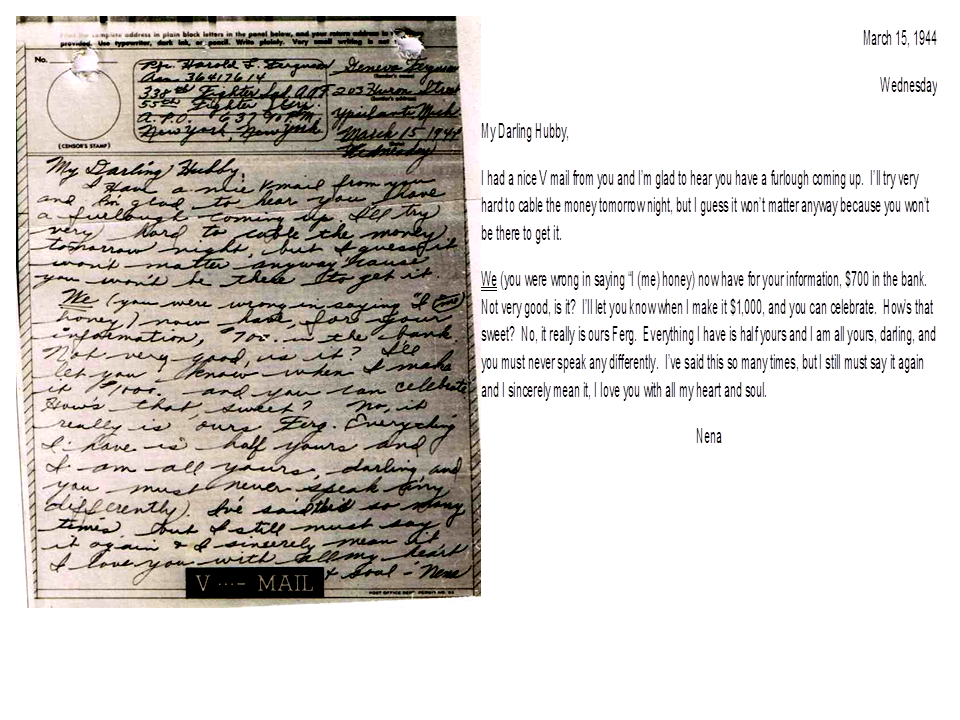 Print the complete address in plain block letters in the panel below, and your return address in the
provided. Use typewriter, dark ink, or pencil. Write plainly. Very small writing is not
No.
(CENSOR'S STAMP)
Pfc. Harold L. Ferguson
Asn. 36417614
338th Fighter Sqd. AAF
55th Fighter Group
A.P.O. 637 % P.M.
New York, New York
Geneva Ferguson
(Sender's name)
203 Huron Street
(Sender's address)
Ypsilanti Mich.
March 15 1944
(Date)
Wednesday
My Darling Hubby,
I Have a nice Vmail from you
and I'm glad to hear you have
a furlough coming up I'll try
very hard to cable the money
tomorrow night, but I guess it
won't matter anyway 'cause
you won't be there to get it.
We (you were wrong in saying "I (me)
honey) now have, for your
information, $700. in the bank.
Not very good, is it? I'll
let you know when I make
it $1000. and you can celebrate
How's that sweet? No, it
really is ours Ferg. Everything
I have is half yours and
I am all yours, darling and
you must never speak any
differently. I've said this so many
times but I still must say
it again & I sincerely mean it
I love you with all my heart
& soul - Nena
V ...- MAIL
POST OFFICE DEPT. PERMIT NO.
March 15, 1944
Wednesday
My Darling Hubby,
I had a nice V mail from you and I'm glad to hear you have a furlough coming up. I'll try very
hard to cable the money tomorrow night, but I guess it won't matter anyway because you won't
be there to get it.
We (you were wrong in saying "I (me) honey) now have for your information, $700 in the bank.
Not very good, is it? I'll let you know when I make it $1,000, and you can celebrate. How's that
sweet? No, it really is ours Ferg. Everything I have is half yours and I am all yours, darling, and
you must never speak any differently. I've said this so many times, but I still must say it again
and I sincerely mean it, I love you with all my heart and soul.
Nena